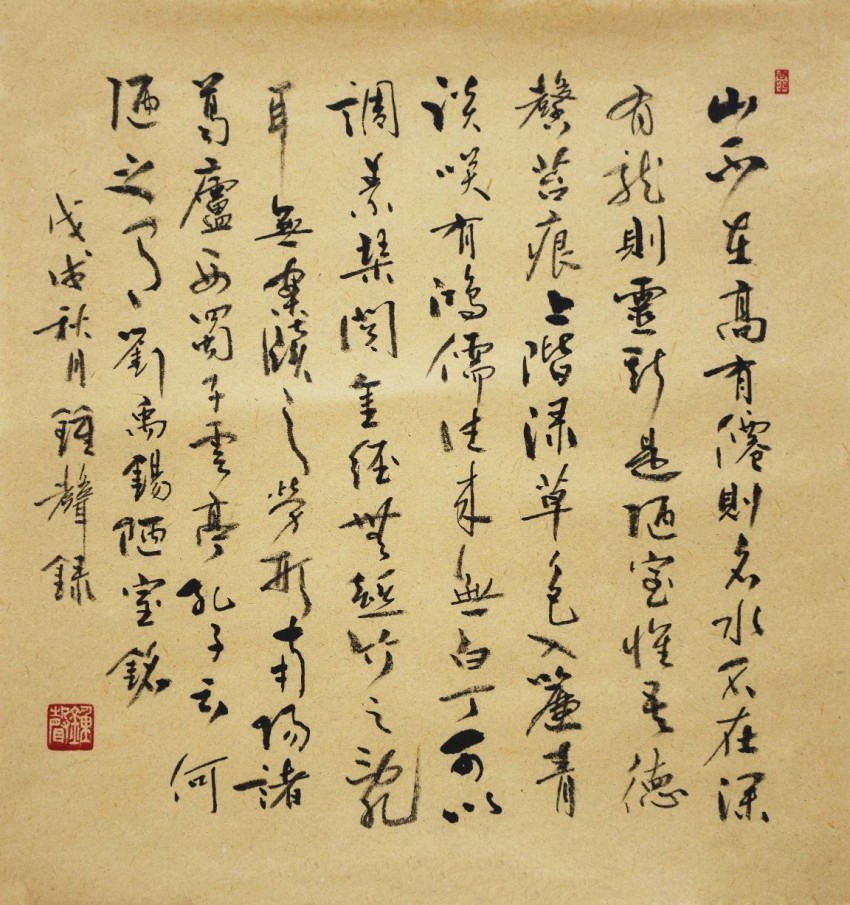 山不在高有僊則名水不在深
有龍則靈斯是陋室惟吾德
馨苔痕上階綠草色入簾青
談咲有鴻儒往來無白丁可以
調素琴閱金經無絲竹之亂
耳無案牘之勞形南陽諸
葛廬西蜀子雲亭孔子云何
陋之有劉禹錫陋室銘
戊戌秋月鍾聲録
鍾聲